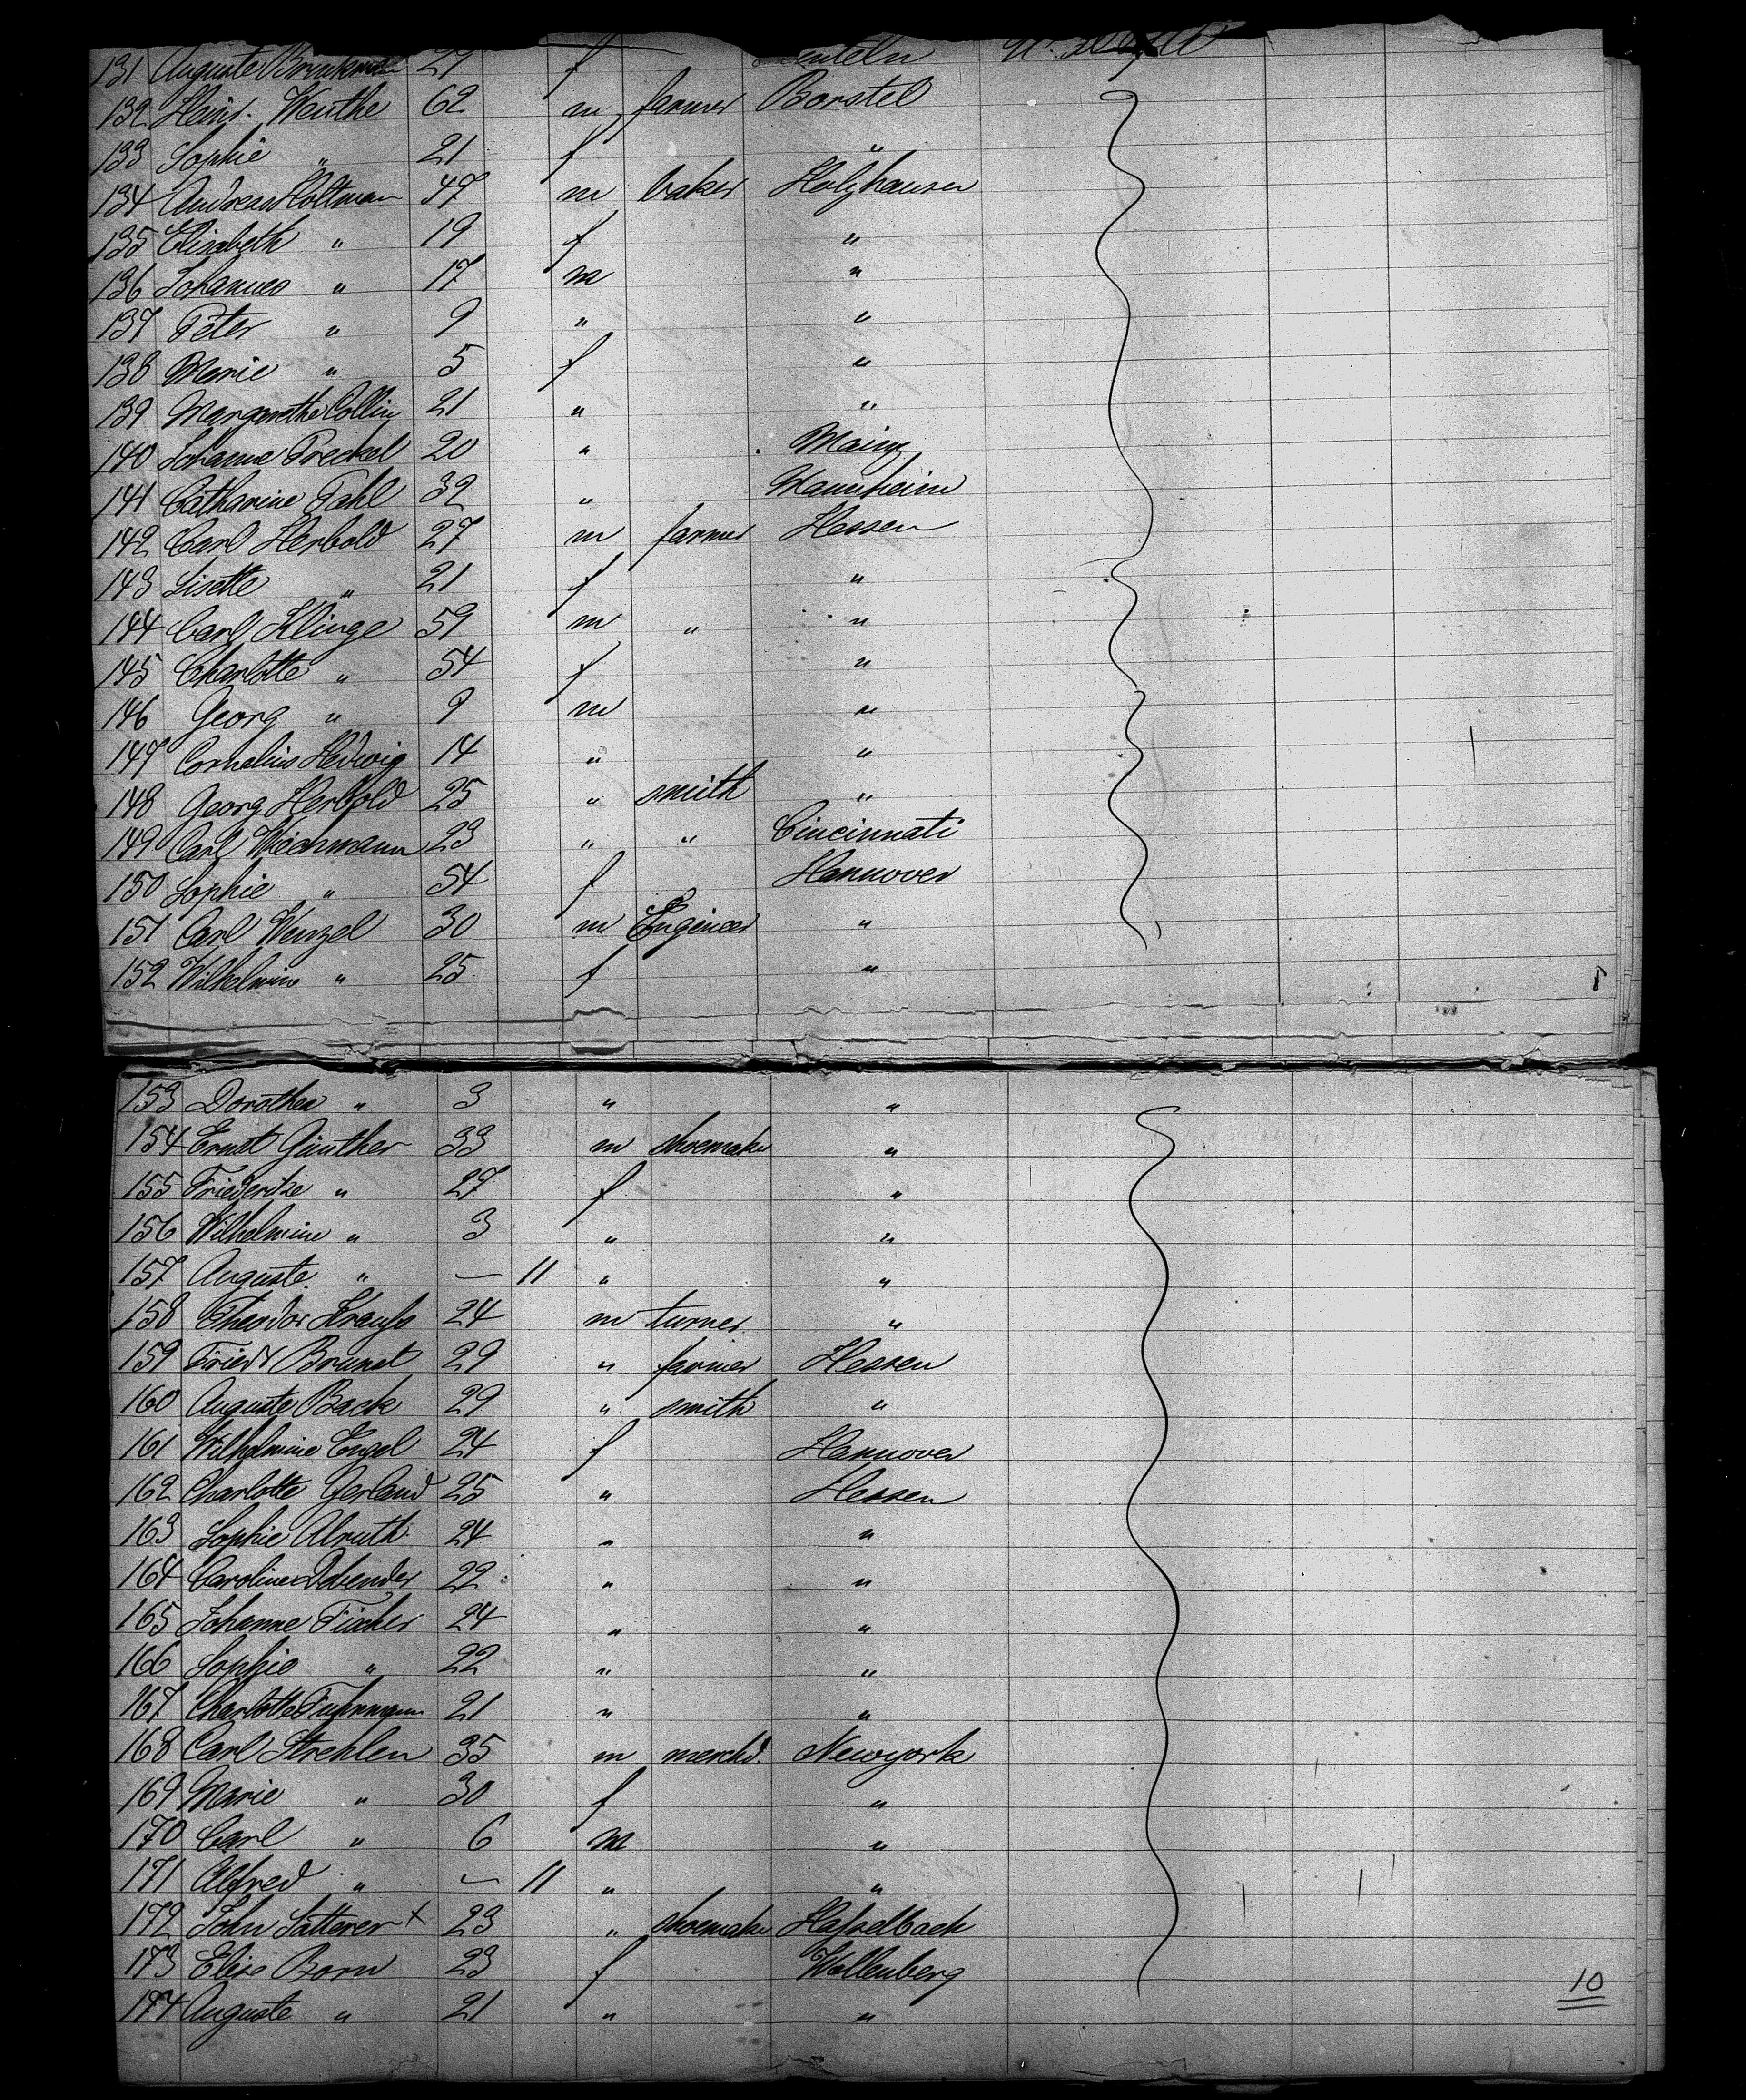 131 Auguste Brinkman 29 f
132 Heinr. Wenthe 62 m farmer Borstel
133 Sophie " 21 f "
134 Andreas Holtman 47 m baker Holzhausen
135 Elisabeth " 19 f "
136 Johannes " 17 m "
137 Peter " 9 " "
138 Marie " 5 f "
139 Margarethe Collin 21 " "
140 Johanne Preckel 20 " Mainz
141 Catharine Fahl 32 " Mannheim
142 Carl Herbold 27 m farmer Hessen
143 Lisette " 21 f "
144 Carl Klinge 59 m " "
145 Charlotte " 54 f "
146 Georg " 9 m "
147 Cornelius Hedwig 14 " "
148 Georg Herbold 25 " smith "
149 Carl Wiechmann 23 " " Cincinnati
150 Sophie " 54 f Hannover
151 Carl Wenzel 30 m Engineer "
152 Wilhelmine " 25 f "
153 Dorothea " 3 " "
154 Ernst Günther 33 m shoemaker "
155 Friederike " 27 f "
156 Wilhelmine " 3 " "
157 Auguste " — 11 " "
158 Theodor Krauss 24 m turner "
159 Friedr Brunst 29 " farmer Hessen
160 Auguste Back 29 " smith "
161 Wilhelmine Engel 24 f Hannover
162 Charlotte Gerland 25 " Hessen
163 Sophie Alruth 24 " "
164 Caroline 22 " "
165 Johanne Fischer 24 " "
166 Sophie " 22 " "
167 Charlotte Fuhrmann 21 " "
168 Carl Strehlen 35 m merchd. Newyork
169 Marie " 30 f "
170 Carl " 6 m "
171 Alfred " — 11 " "
172 John Satterer x 23 " shoemaker Hasselbach
173 Elise Born 23 f Wollenberg
10
174 Auguste " 21 " "